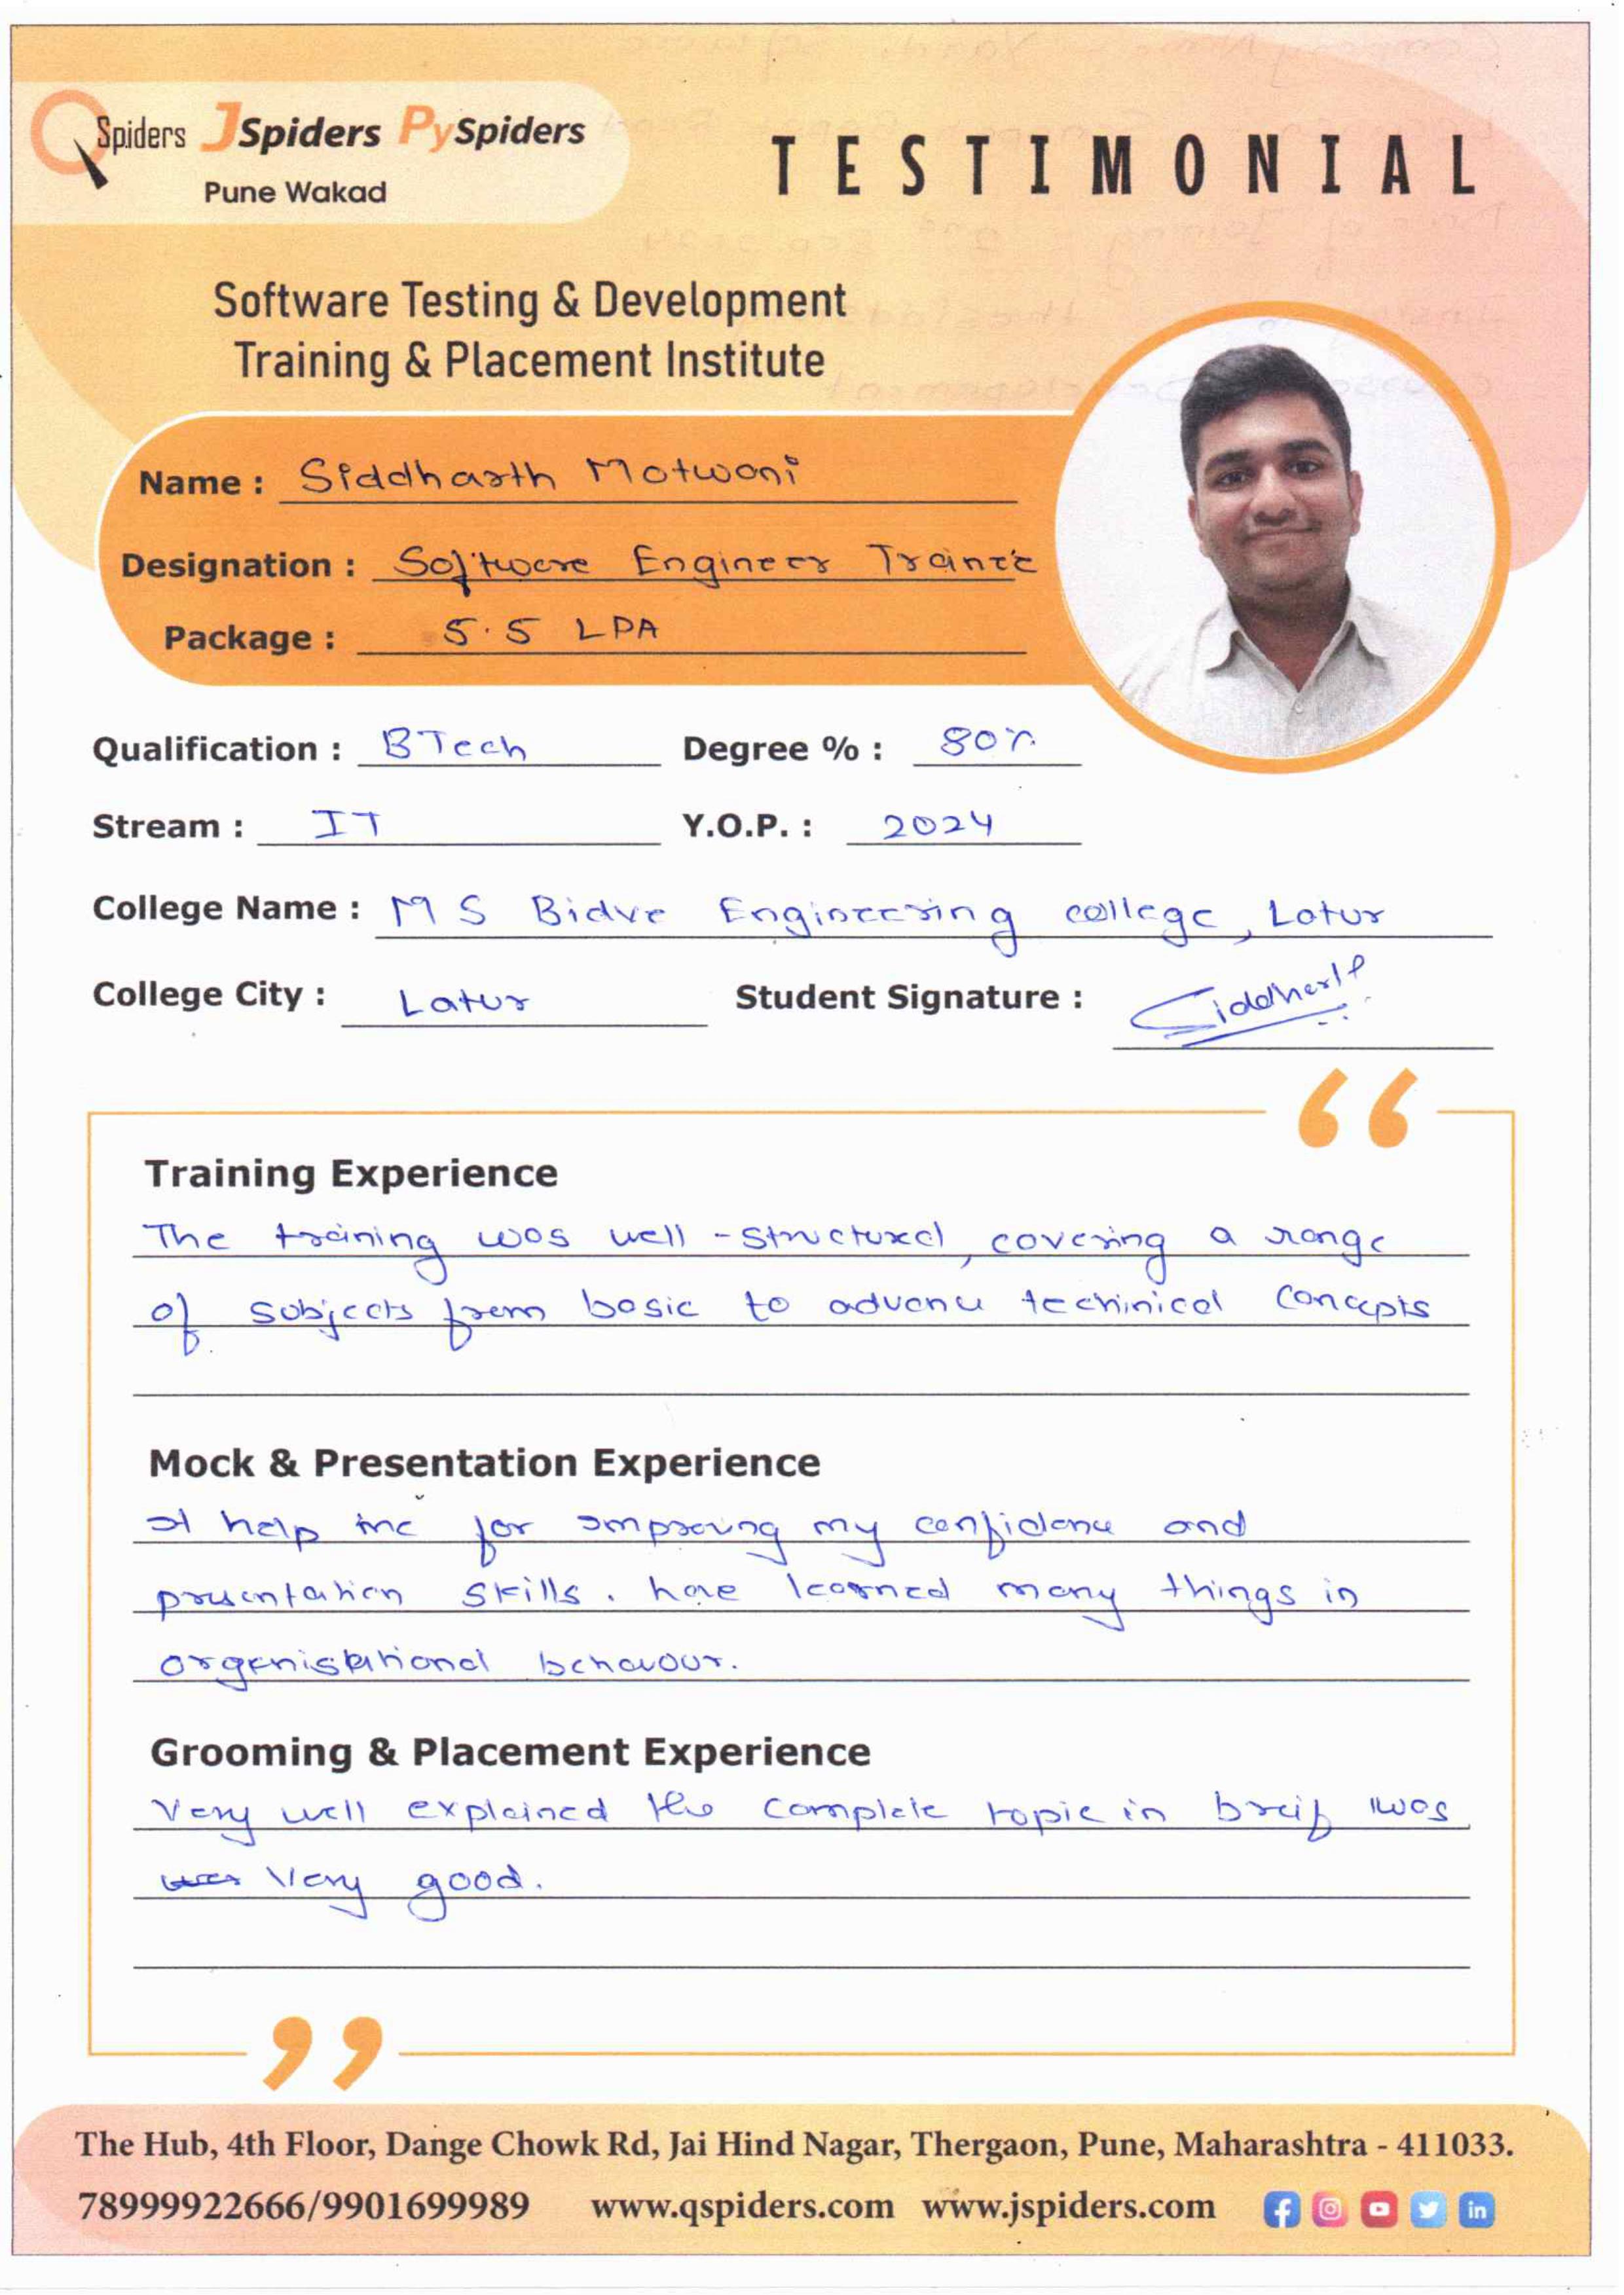 QSpiders JSpiders PySpiders
Pune Wakad
TESTIMONIAL
Software Testing & Development
Training & Placement Institute
Name : Siddharth Motwani
Designation : Software Engineer Trainee
Package : 5.5 LPA
Qualification : BTech Degree % : 80%
Stream : IT Y.O.P. : 2024
College Name : M S Bidve Engineering college, Latur
College City : Latur Student Signature : Siddharth
“
Training Experience
The training was well-structured, covering a range
of subjects from basic to advance techinical concepts
Mock & Presentation Experience
It help me for improving my confidence and
presentation skills. have learned many things in
organisational behavour.
Grooming & Placement Experience
Very well explained the complete topic in breif was
very good.
”
The Hub, 4th Floor, Dange Chowk Rd, Jai Hind Nagar, Thergaon, Pune, Maharashtra - 411033.
78999922666/9901699989 www.qspiders.com www.jspiders.com